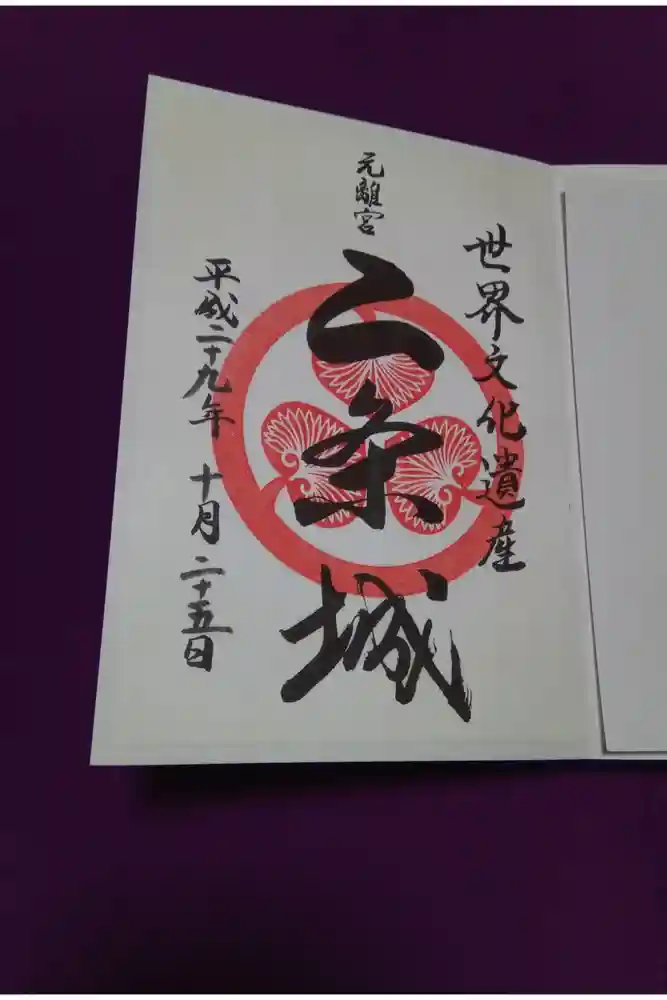 世界文化遺産
元離宮
二条城
平成二十九年 十月 二十五日